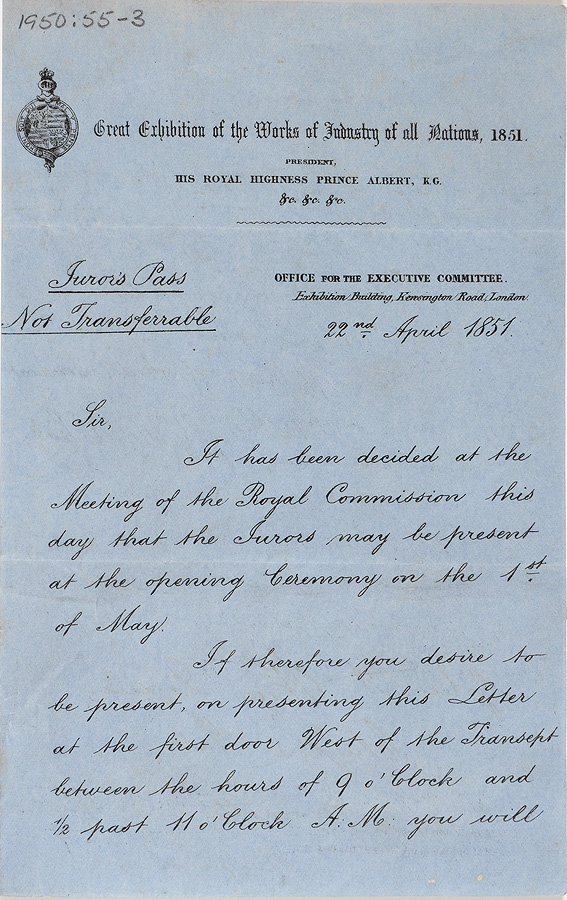 1950:55-3
Great Exhibition of the Works of Industry of all Nations, 1851.
PRESIDENT,
HIS ROYAL HIGHNESS PRINCE ALBERT, K.G.
&c. &c. &c.
Jurors Pass
Not Transferrable
OFFICE FOR THE EXECUTIVE COMMITTEE.
Exhibition Building, Kensington Road, London.
22nd April 1851.
Sir,
It has been decided at the
Meeting of the Royal Commission this
day that the Jurors may be present
at the opening Ceremony on the 1st
of May.
If therefore you desire to
be present, on presenting this Letter
at the first door West of the Transept
between the hours of 9 o'Clock and
½ past 11 o'Clock A.M: you will